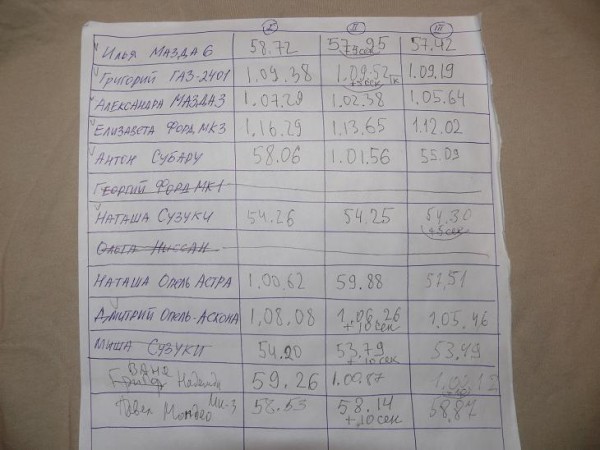 I II III
Илья Мазда 6 58.72 57.95 57.42
+5 сек
Григорий ГАЗ-2401 1.09.38 1.09.52 1.09.19
+5 сек 1к
Александра Мазда3 1.07.29 1.02.38 1.05.64
Елизавета Форд МК3 1.16.29 1.13.65 1.12.02
Антон Субару 58.06 1.01.56 55.09
Георгий Форд МК1
Наташа Сузуки 54.26 54.25 54.30
+5 сек
Ольга Ниссан
Наташа Опель Астра 1.00.62 59.88 57,51
Дмитрий Опель-Аскона 1.08.08 1.06.26 1.05.46
+10 сек
Миша Сузуки 54.20 53.79 53.49
+10 сек
Ваня
59.26 1.00.87
Мк-3
Павел Мондео 58.53 58.14 58.87
+10 сек